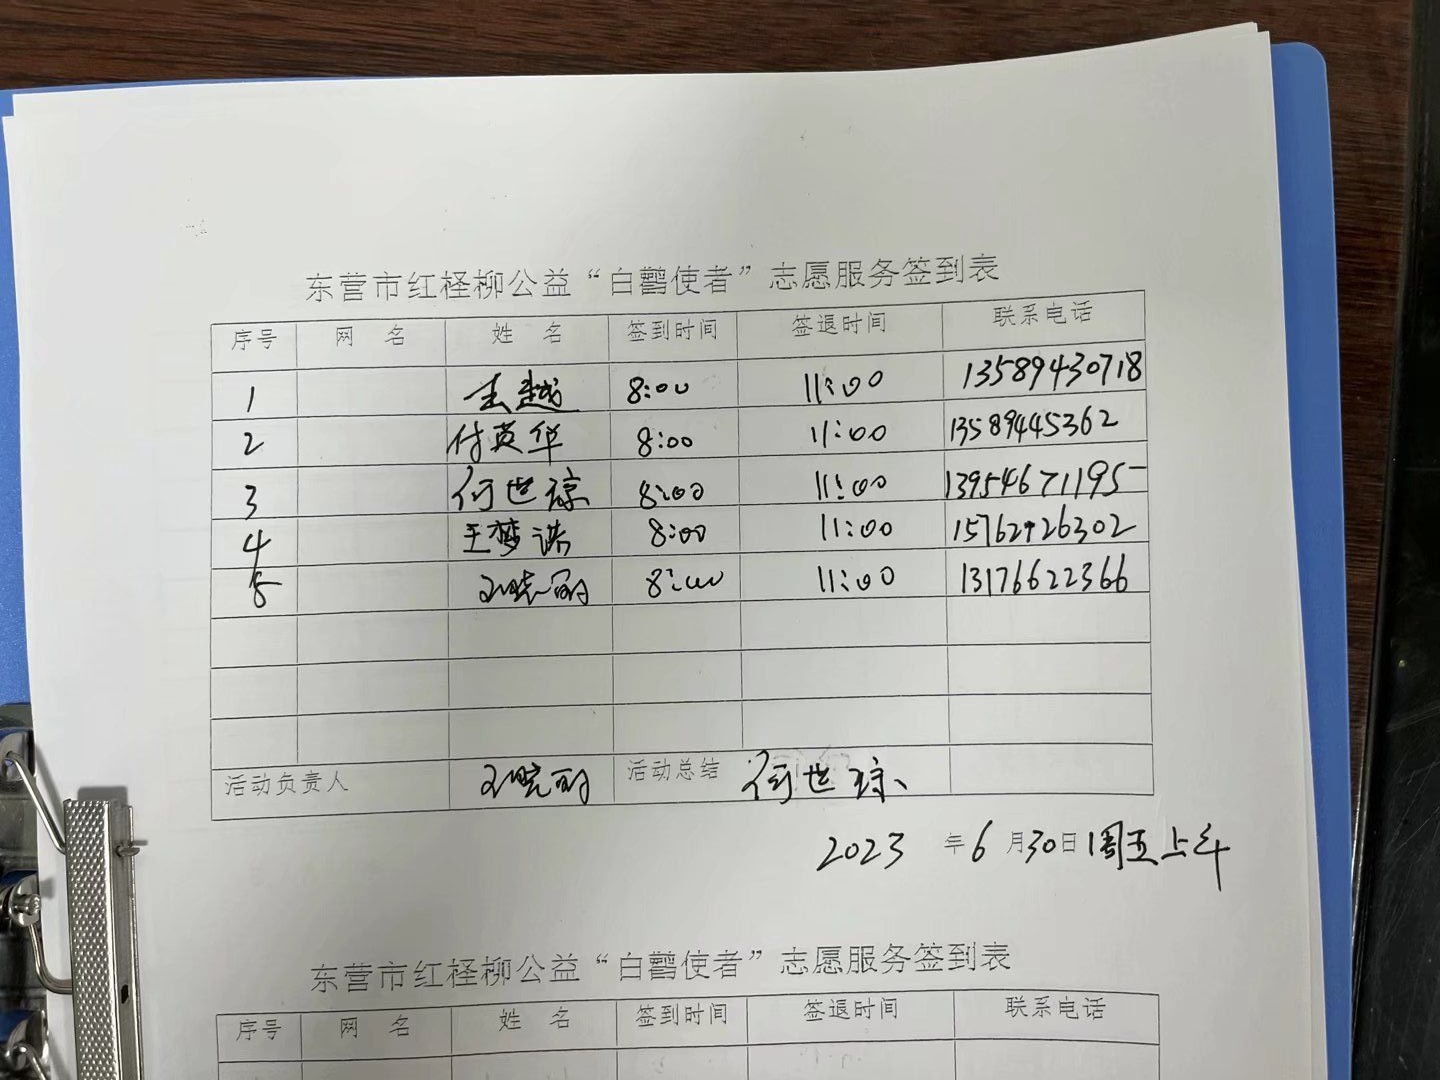 东营市红柽柳公益“白鹳使者”志愿服务签到表
序号 网 名 姓 名 签到时间 签退时间 联系电话
1 越 8:00 11:00 13589430718
2 付英华 8:00 11:00 13589445362
3 何世琼 8:00 11:00 13954671195
4 王梦 8:00 11:00 15762926302
5 8:00 11:00 13176622366
活动负责人 活动总结 何世琼
2023 年 6 月 30 日 周五上午
东营市红柽柳公益“白鹳使者”志愿服务签到表
序号 网 名 姓 名 签到时间 签退时间 联系电话